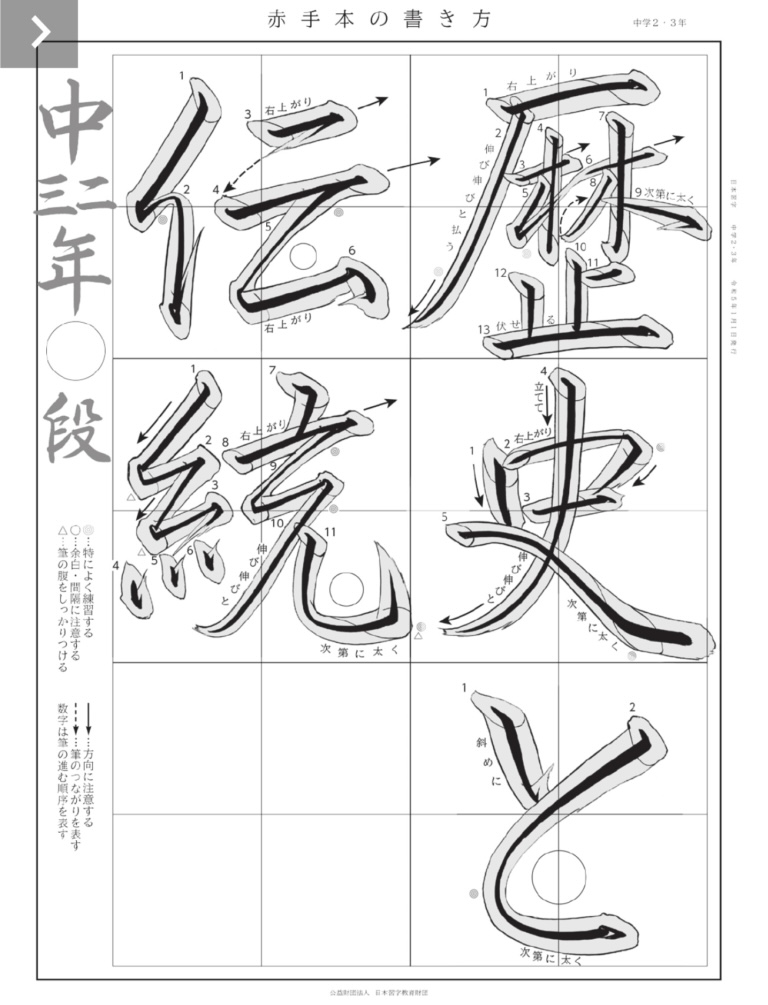 赤手本の書き方
中学2・3年
歴史と
伝統
1
右上がり
2
伸び伸びと払う
3
4
5
6
7
8
9次第に太く
10
11
12
13
伏せる
1
2
右上がり
3
4
立てて
5
伸び伸びと
次第に太く
1
斜めに
2
次第に太く
1
2
3
右上がり
4
5
6
右上がり
1
2
3
4
5
6
7
8
右上がり
9
10
11
伸び伸びと
次第に太く
中二三年○段
◎…特によく練習する
○…余白・間隔に注意する
△…筆の腹をしっかりつける
…方向に注意する
…筆のつながりを表す
数字は筆の進む順序を表す
日本習字 中学2・3年 令和5年1月1日発行
公益財団法人 日本習字教育財団